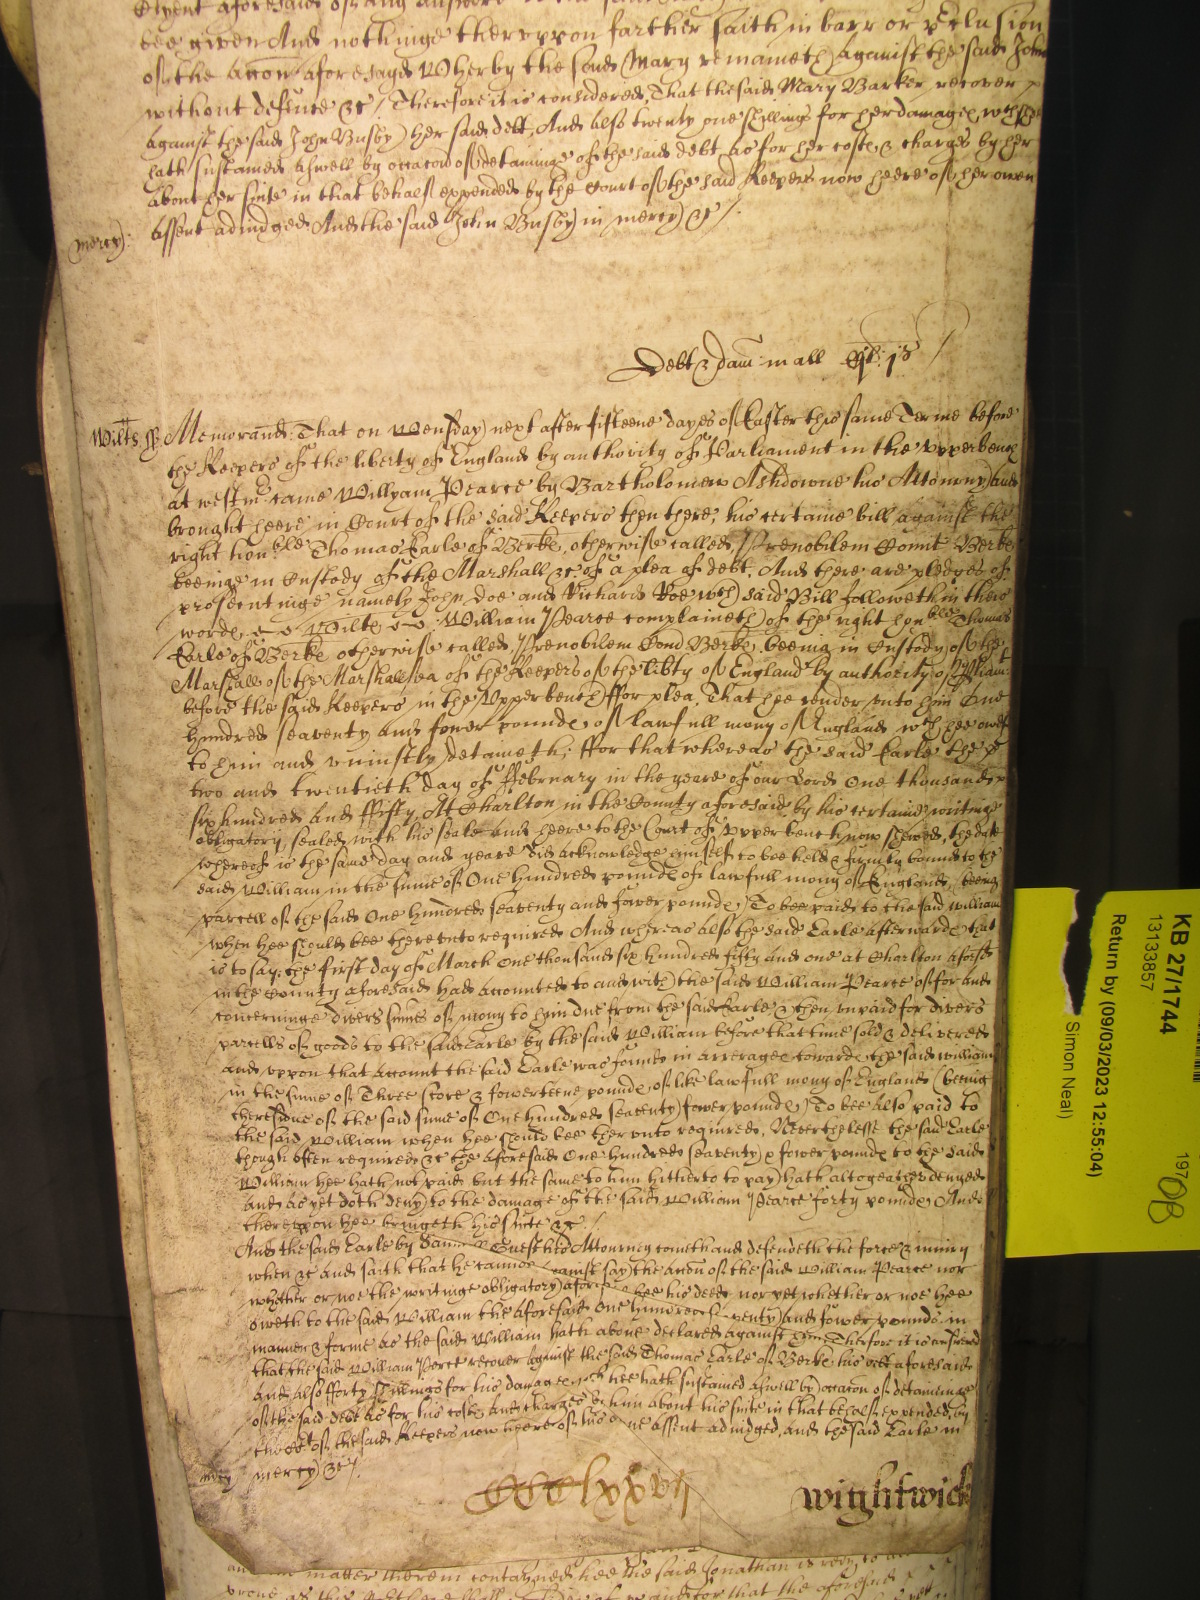 bee given And nothinge therupon farther saith in barr or
of the accon aforesayd Wherby the said Mary remaineth against the said John
without defence &c / Therefore it is considered That the said Mary Barker recover
against the said John Busby her said debt, And also twenty one shillings for her damages, wch shee
hath susteined aswell by occacon of detaininge of the said debt as for her costs & charges by her
about her suite in that behalf expended by the Court of the said Keepers now heere of her owne
assent adiudged And the said John Busby in mercy &c /.
mercy:
Debt & dam: in all
Wilts ss Memorand: That on Wensday next after fifteene dayes of Easter this same Terme before
the Keepers of the liberty of England by authority of Parliament in the Upper bench
at westm: came Willyam Pearce by Bartholomew Ashdowne his Attorny And
brought heere in Court of the said Keepers then there, his certaine bill against the
right hon:ble Thomas Earle of Berke, otherwise called, Prenobilem Comit Berke
beeinge in Custody of the Marshall &c of a plea of debt, And there are pledges of
prosecutinge namely John Doe and Richard Roe wch said Bill followeth in these
words, Wilts William Pearce complaineth of the right honble Thomas
Earle of Berke otherwise called, Prenobilem Berke, beeing in Custody of the
Marshall of the Marshallsea of the Keepers of the libty of England by authority of Parliamt
before the said Keepers in the Upper bench ffor plea, That hee render unto him One
hundred seaventy and fower pounds of lawfull mony of England wch hee oweth
to him and uniustly detaineth; ffor that whereas the said Earle the
two and twentieth day of ffebruary in the yeare of our Lord One thousand
six hundred and ffifty, At Charlton in the County aforesaid by his certaine writinge
obligatory, sealed with his seale and heere to the Court of Upper bench now shewed, the date
whereof is the same day and yeare did acknowledge himselfe to bee held & firmly bound to the
said William in the sume of One hundred pounds of lawfull mony of England, (beeing
parcell of the said One hundred seaventy and fower pounds) To bee paid to the said William
when hee should bee thereunto required And whereas also the said Earle afterwards that
is to say, the first day of March One thousand six hundred fifty and one at Charlton aforesd
in the County aforesaid had accounted to and with the said William Pearce of for and
concerninge divers sumes of mony to him due from the said Earle & then unpaid for divers
parcells of goods to the said Earle by the said William before that time sold & delivered
and uppon that account the said Earle was found in arrerages towards the said William
in the sume of Three score & fowerteene pounds of like lawfull mony of England (beeing
the residue of the said sume of One hundred seaventy fower pounds) To bee also paid to
the said William when hee should bee therunto required, Neverthelesse the said Earle
though often required &c the aforesaid One hundred seaventy fower pounds to the said
William hee hath not paid but the same to him hitherto to pay hath altogeather denyed
and as yet doth deny to the damage of the said William Pearce forty pounds, And
thereupon hee bringeth his suite &c. /.
And the said Earle by Guest his Attorney cometh and defendeth the force & iniury
when &c And saith that he cannot gainsay the accon of the said William Pearce nor
whether or noe the writinge obligatory aforesd bee his deed nor yet whether or noe hee
oweth to the said William the aforesaid One hundred seaventy and fower pounds in
manner & forme as the said William hath above declared against him, Therfore it is considered
that the said William Perce recover against the said Thomas Earle of Berke his debt aforesaid
And also fforty shillings for his damages wch hee hath susteined aswell by occacon of detaininge
of the said debt as for his costs and charges by him about his suite in that behalf expended, by
the Cort of the said Keepers now heere of his owne assent adiudged, and the said Earle in
mercy mercy &c /.
CCClxxvij wightwick
matter therein contayned hee the said Jonathan is redy to
for that the aforesaid
KB 27/1744
13133857
Return by (09/03/2023 12:55:04)
Simon Neal)